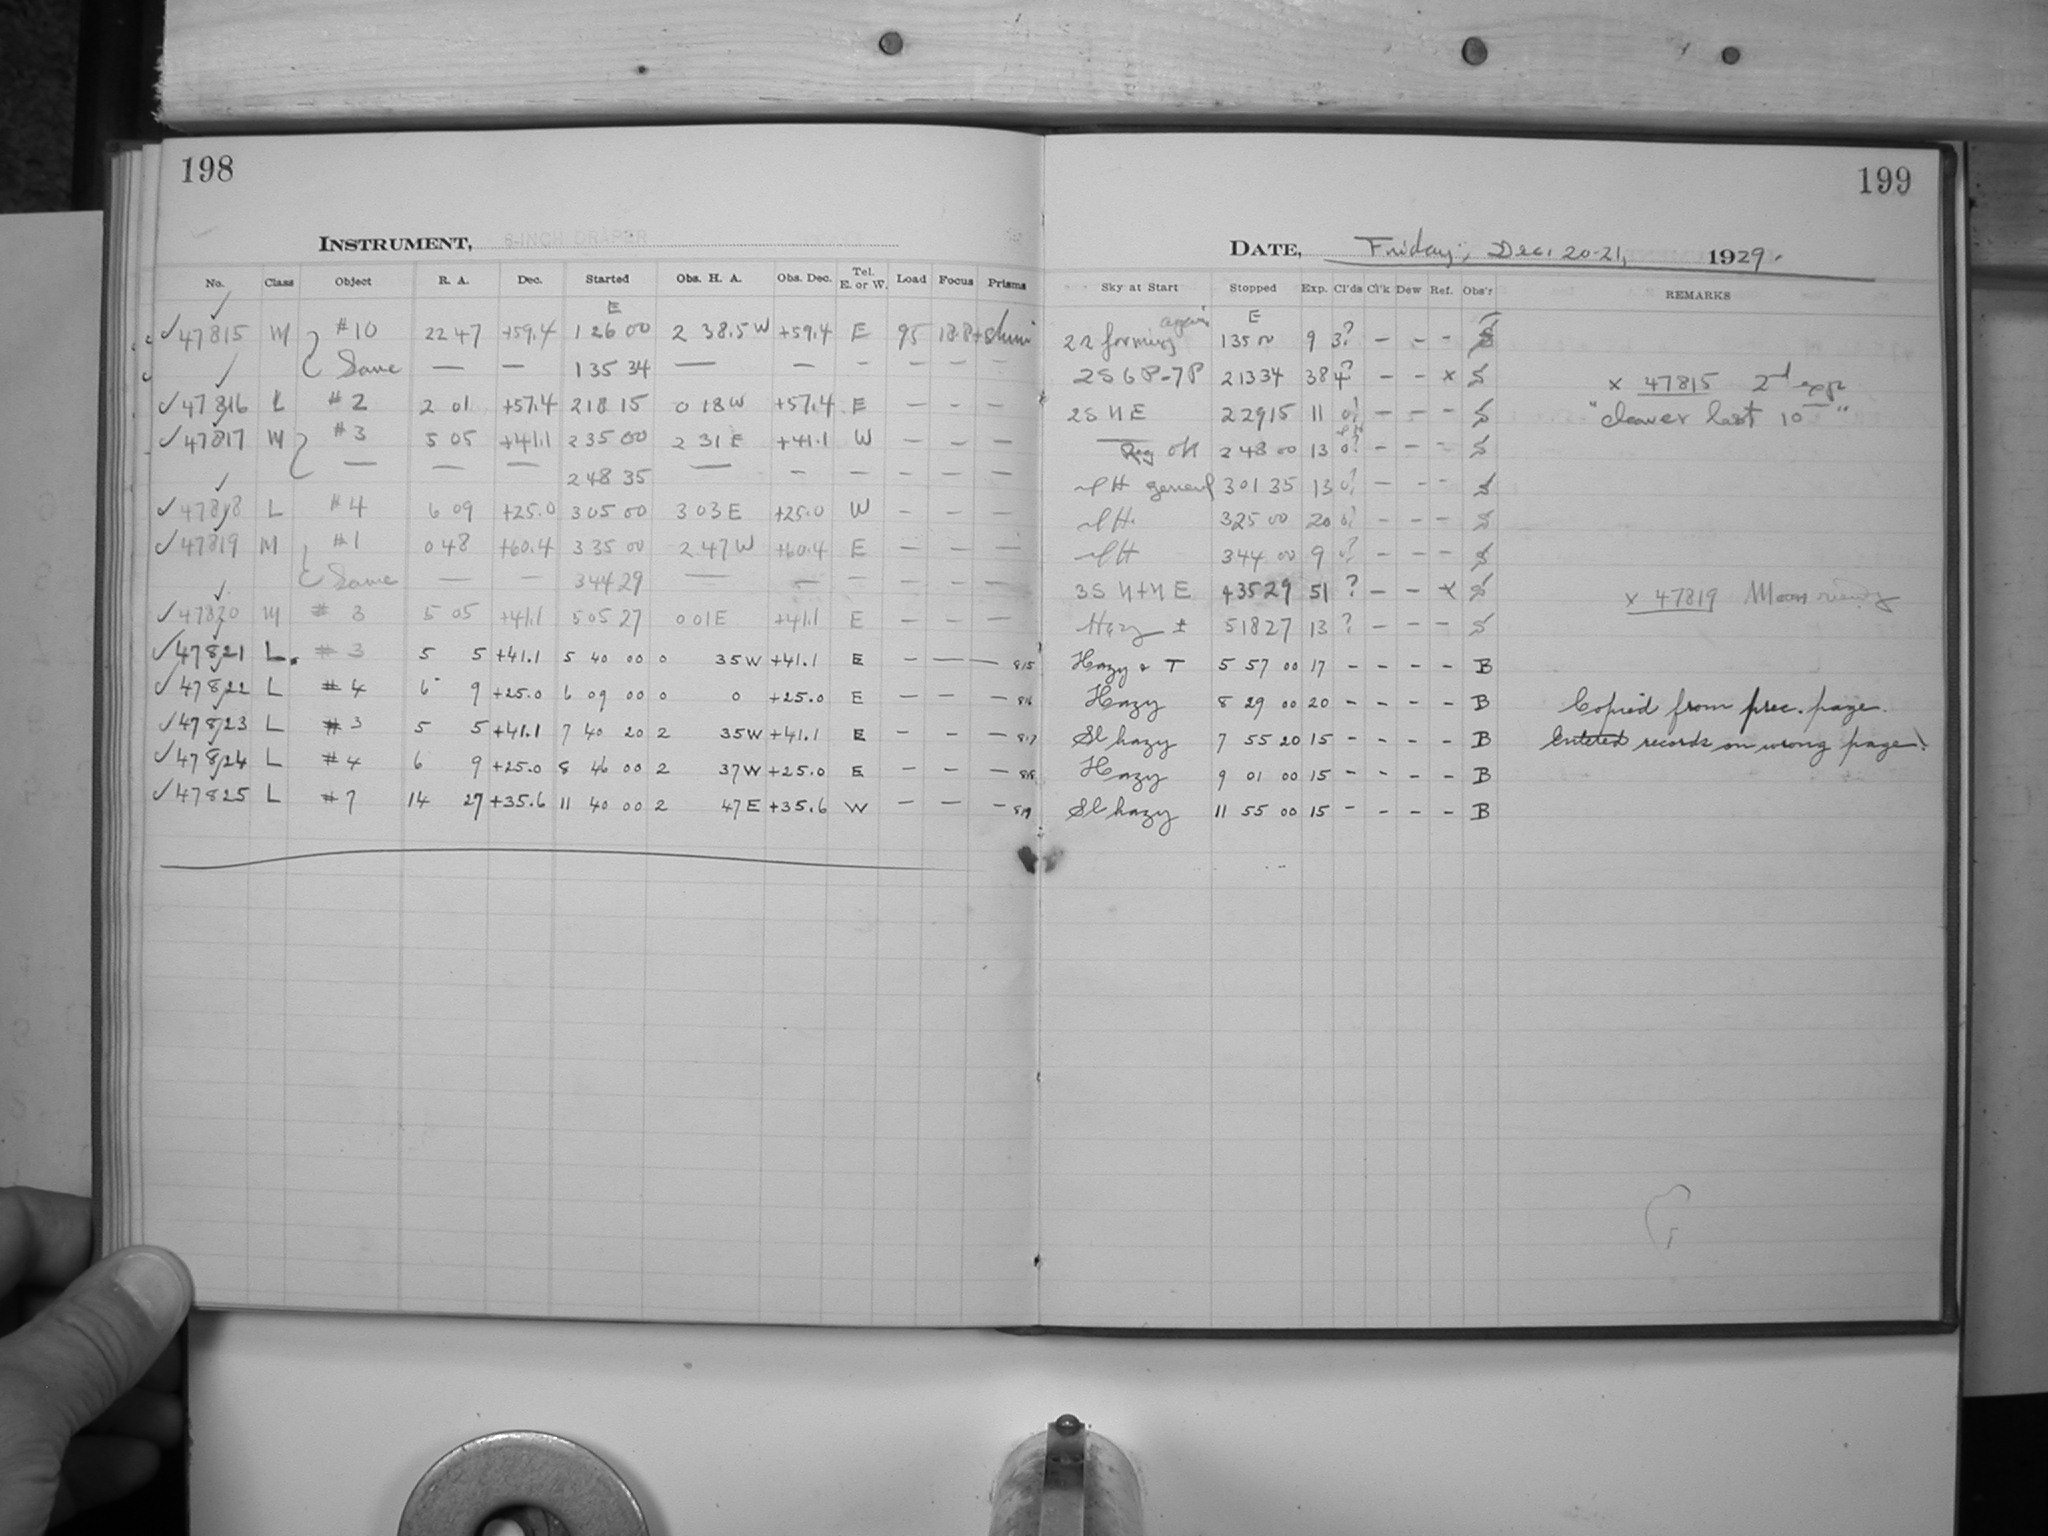 198
199
INSTRUMENT, 8-INCH DRAPER
DATE, Friday, Dec. 20-21, 1929.
No. Class Object R. A. Dec. Started Obs. H. A. Obs. Dec. Tel. E. or W. Load Focus Prisms Sky at Start Stopped Exp. Cl'ds Cl'k Dew Ref. Obs'r REMARKS
E E
✓47815 M #10 22 47 +59.4 1 26 00 2 38.5 W +59.4 E 95 forming again 1 35 00 9 3? – – –
Same — — 1 35 34 — — – – – – 2S 6P-7P 2 13 34 38 4? – – x S x 47815 2nd exp
✓47816 L #2 2 01 +57.4 2 18 15 0 18 W +57.4 E – – – 2S N E 2 29 15 11 0? – – – S "clearer last 10"
✓47817 M #3 5 05 +41.1 2 35 00 2 31 E +41.1 W – – – 2 48 00 13 0? – – – S
— — — 2 48 35 — – – – – – general 3 01 35 13 0? – – – S
✓47818 L #4 6 09 +25.0 3 05 00 3 03 E +25.0 W – – – 3 25 00 20 0? – – – S
✓47819 M #1 0 48 +60.4 3 35 00 2 47 W +60.4 E – – – 3 44 00 9 0? – – – S
Same — — 3 44 29 — – – – – – 3S N+N E 4 35 29 51 ? – – x S x 47819 Moon rising
✓47820 M #3 5 05 +41.1 5 05 27 0 01 E +41.1 E – – – Hazy ± 5 18 27 13 ? – – – S
✓47821 L. #3 5 5 +41.1 5 40 00 0 35 W +41.1 E – – – 815 Hazy & T 5 57 00 17 – – – – B
✓47822 L #4 6 9 +25.0 6 09 00 0 0 +25.0 E – – – 816 Hazy 8 29 00 20 – – – – B Copied from prec. page.
✓47823 L #3 5 5 +41.1 7 40 20 2 35 W +41.1 E – – – 817 Sl hazy 7 55 20 15 – – – – B Entered records on wrong page!
✓47824 L #4 6 9 +25.0 8 46 00 2 37 W +25.0 E – – – 818 Hazy 9 01 00 15 – – – – B
✓47825 L #7 14 27 +35.6 11 40 00 2 47 E +35.6 W – – – 819 Sl hazy 11 55 00 15 – – – – B